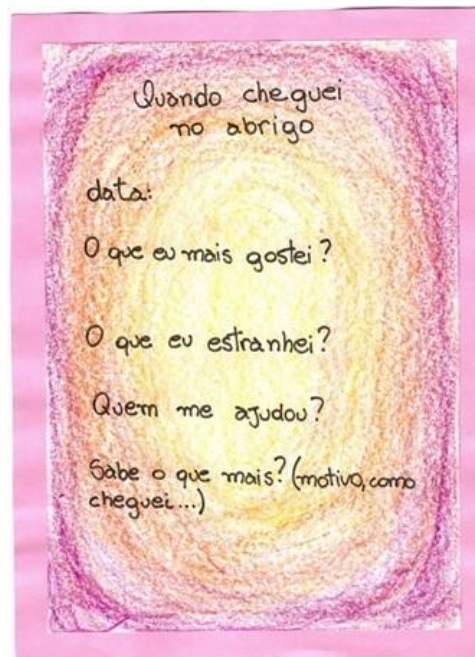 Quando cheguei
no abrigo
data:
O que eu mais gostei?
O que eu estranhei?
Quem me ajudou?
Sabe o que mais? (motivo, como
cheguei...)